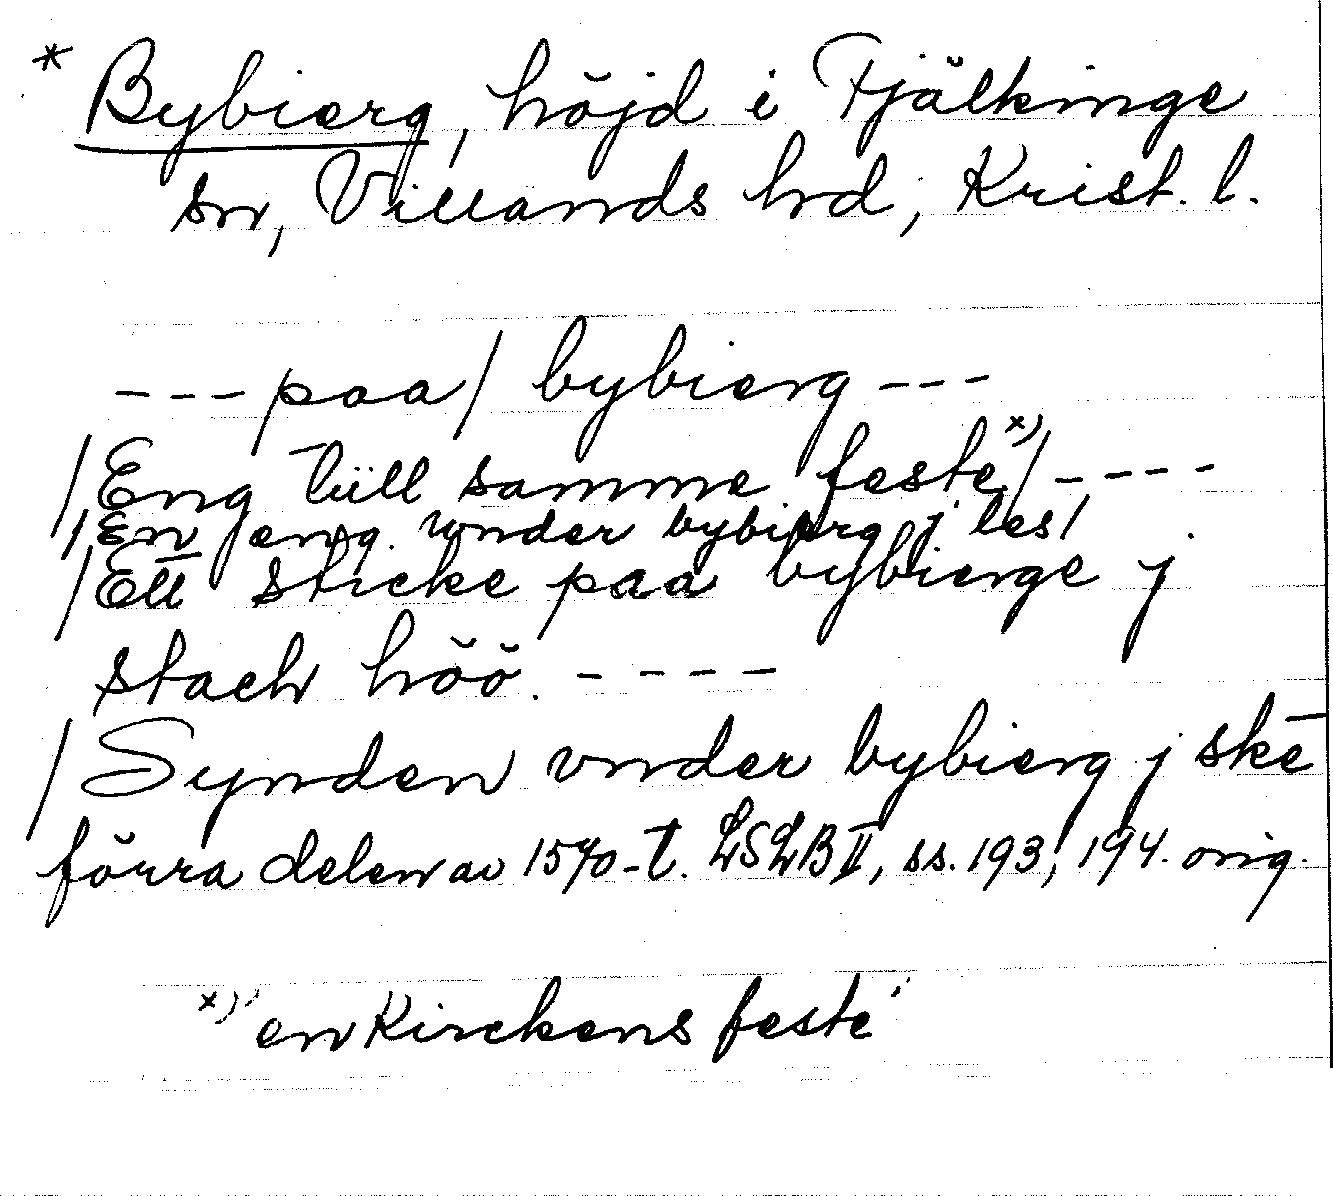 * Bybierg, höjd i Fjälkinge
sn, Villands hd, Krist. l.
--- paa/ bybierg ---
/Eng tüll samme feste x)/ ----
/En eng. vnder bybierg j les/
/Ett sticke paa bybierge j
stack höö. ----
/Synden vnder bybierg j skē
förra delen av 1570-t. LSLB II, ss. 193, 194. orig.
x) "en Kirckens feste"